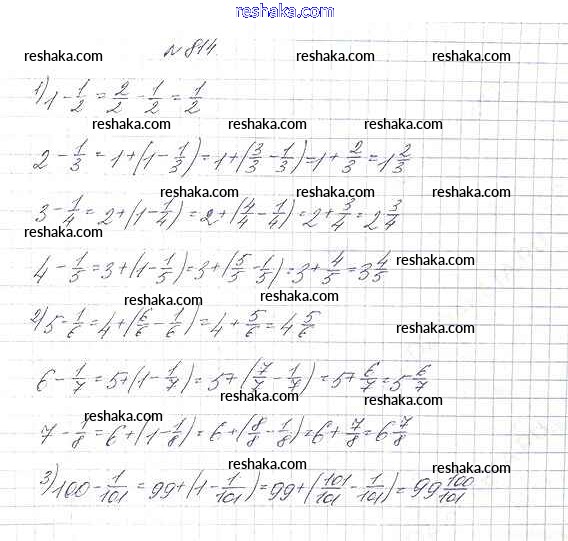 reshaka.com
№ 814
reshaka.com reshaka.com reshaka.com
1) 1 - 1/2 = 2/2 - 1/2 = 1/2
reshaka.com reshaka.com reshaka.com
2 - 1/3 = 1 + (1 - 1/3) = 1 + (3/3 - 1/3) = 1 + 2/3 = 1 2/3
reshaka.com reshaka.com reshaka.com
3 - 1/4 = 2 + (1 - 1/4) = 2 + (4/4 - 1/4) = 2 + 3/4 = 2 3/4
reshaka.com reshaka.com
4 - 1/5 = 3 + (1 - 1/5) = 3 + (5/5 - 1/5) = 3 + 4/5 = 3 4/5
reshaka.com reshaka.com
2) 5 - 1/6 = 4 + (6/6 - 1/6) = 4 + 5/6 = 4 5/6
reshaka.com
6 - 1/7 = 5 + (1 - 1/7) = 5 + (7/7 - 1/7) = 5 + 6/7 = 5 6/7
reshaka.com reshaka.com
7 - 1/8 = 6 + (1 - 1/8) = 6 + (8/8 - 1/8) = 6 + 7/8 = 6 7/8
reshaka.com reshaka.com
3) 100 - 1/101 = 99 + (1 - 1/101) = 99 + (101/101 - 1/101) = 99 100/101
reshaka.com reshaka.com reshaka.com